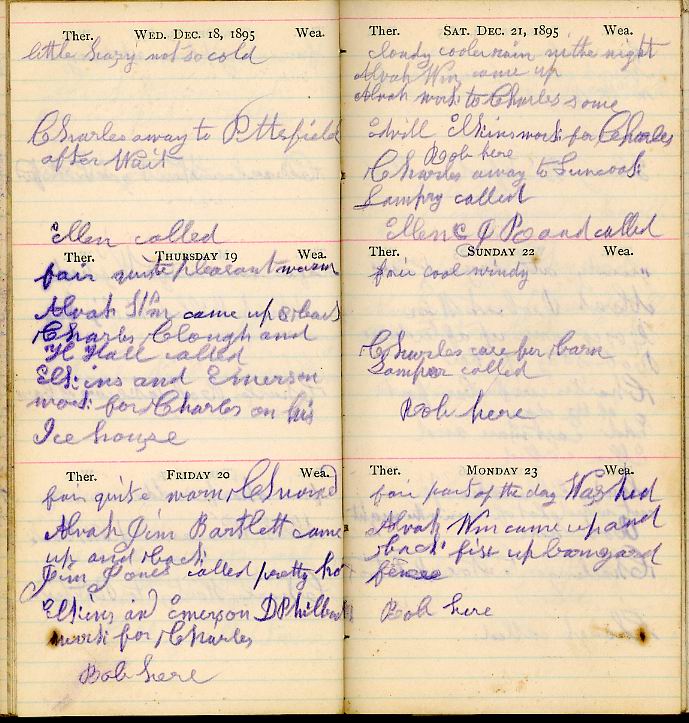 Ther. WED. DEC. 18, 1895 Wea.
little hazy not so cold
Charles away to Pittsfield
after Wait
Ellen called
Ther. THURSDAY 19 Wea.
fair quite pleasant warm
Alvah Wm came up & back
Charles Clough and
H Hall called
Elkins and Emerson
work for Charles on his
Ice house
Ther. FRIDAY 20 Wea.
fair quite warm Churned
Alvah Jim Bartlett came
up and back
Jim Jones called pretty ho
Elkins and Emerson D Philbrick
work for Charles
Bob here
Ther. SAT. DEC. 21, 1895 Wea.
cloudy cooler rain in the night
Alvah Wm came up
Alvah work to Charles some
Elkins work for Charles
Bob here
Charles away to Suncook
Lampry called
Ellen & and called
Ther. SUNDAY 22 Wea.
fair cool windy
Charles care for barn
called
Bob here
Ther. MONDAY 23 Wea.
fair part of the day Washed
Alvah Wm came up and
back fixt up barnyard
fence
Bob here